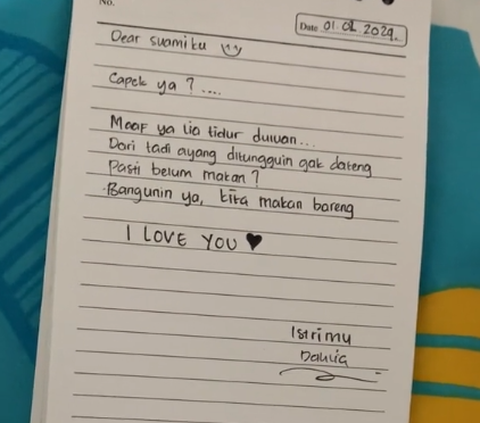 No.
Date 01.01.2024.
Dear suamiku
Capek ya ?....
Maaf ya lia tidur duluan...
Dari tadi ayang ditungguin gak dateng
Pasti belum makan ?
Bangunin ya, kita makan bareng
I LOVE YOU ♥
Istrimu
Dahlia